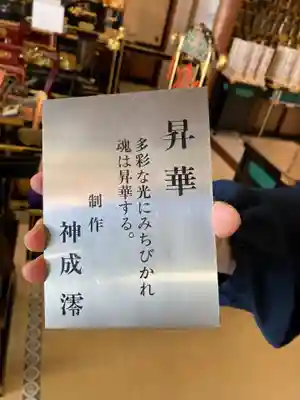 昇華
多彩な光にみちびかれ
魂は昇華する。
制作
神成 澪